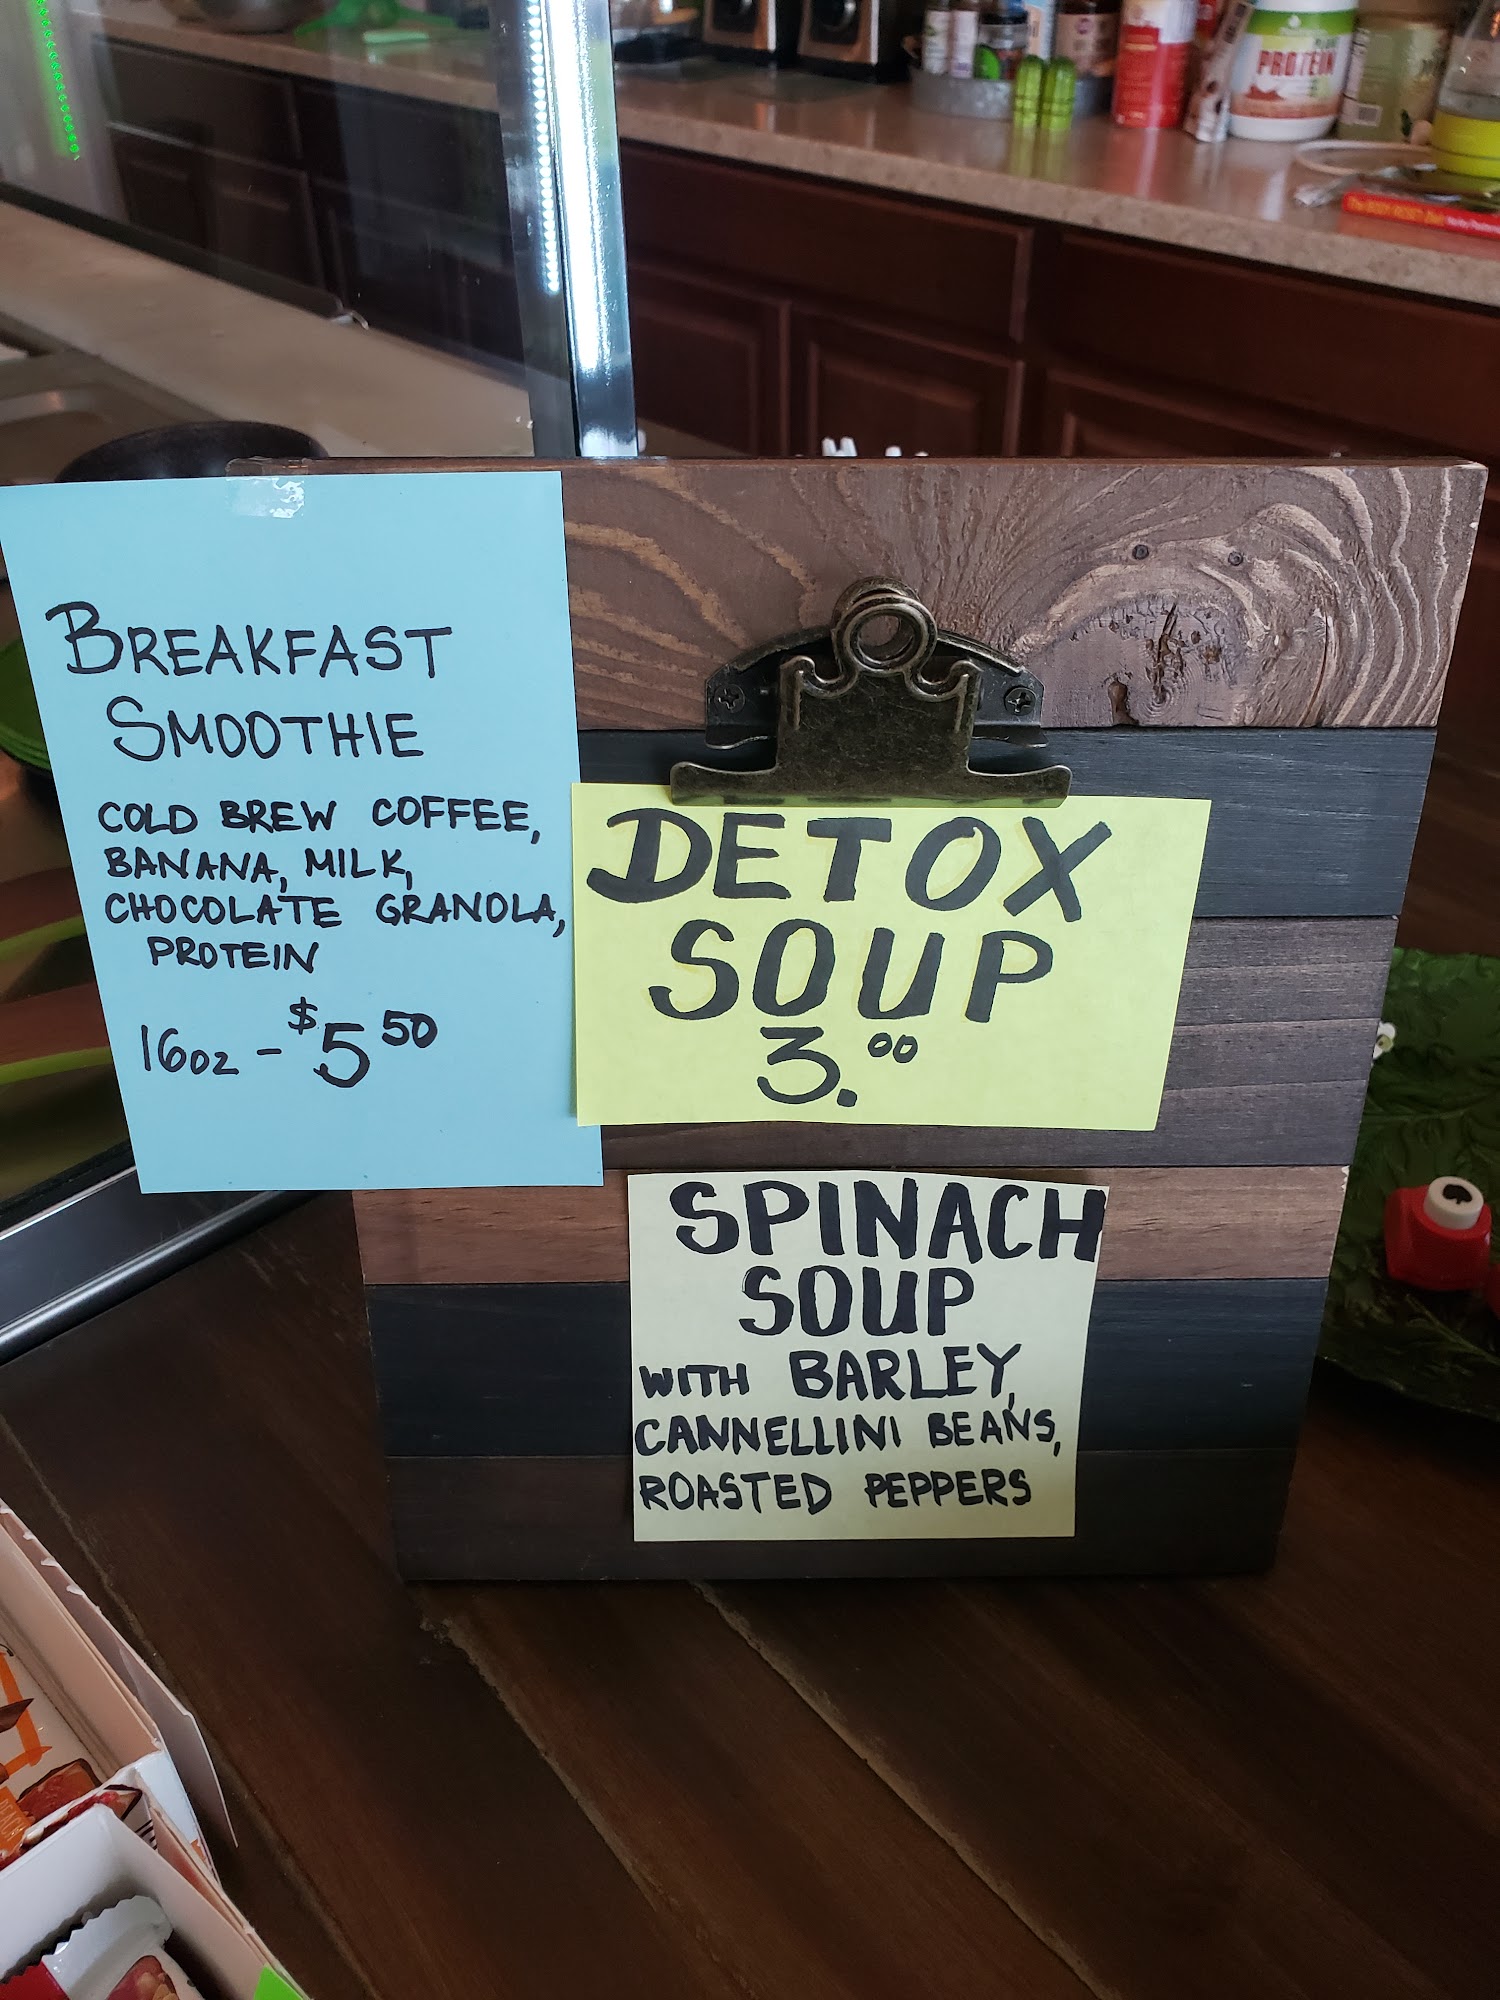 BREAKFAST
SMOOTHIE
COLD BREW COFFEE,
BANANA, MILK,
CHOCOLATE GRANOLA,
PROTEIN
16oz - $5 50
DETOX
SOUP
3.00
SPINACH
SOUP
WITH BARLEY,
CANNELLINI BEANS,
ROASTED PEPPERS
PROTEIN